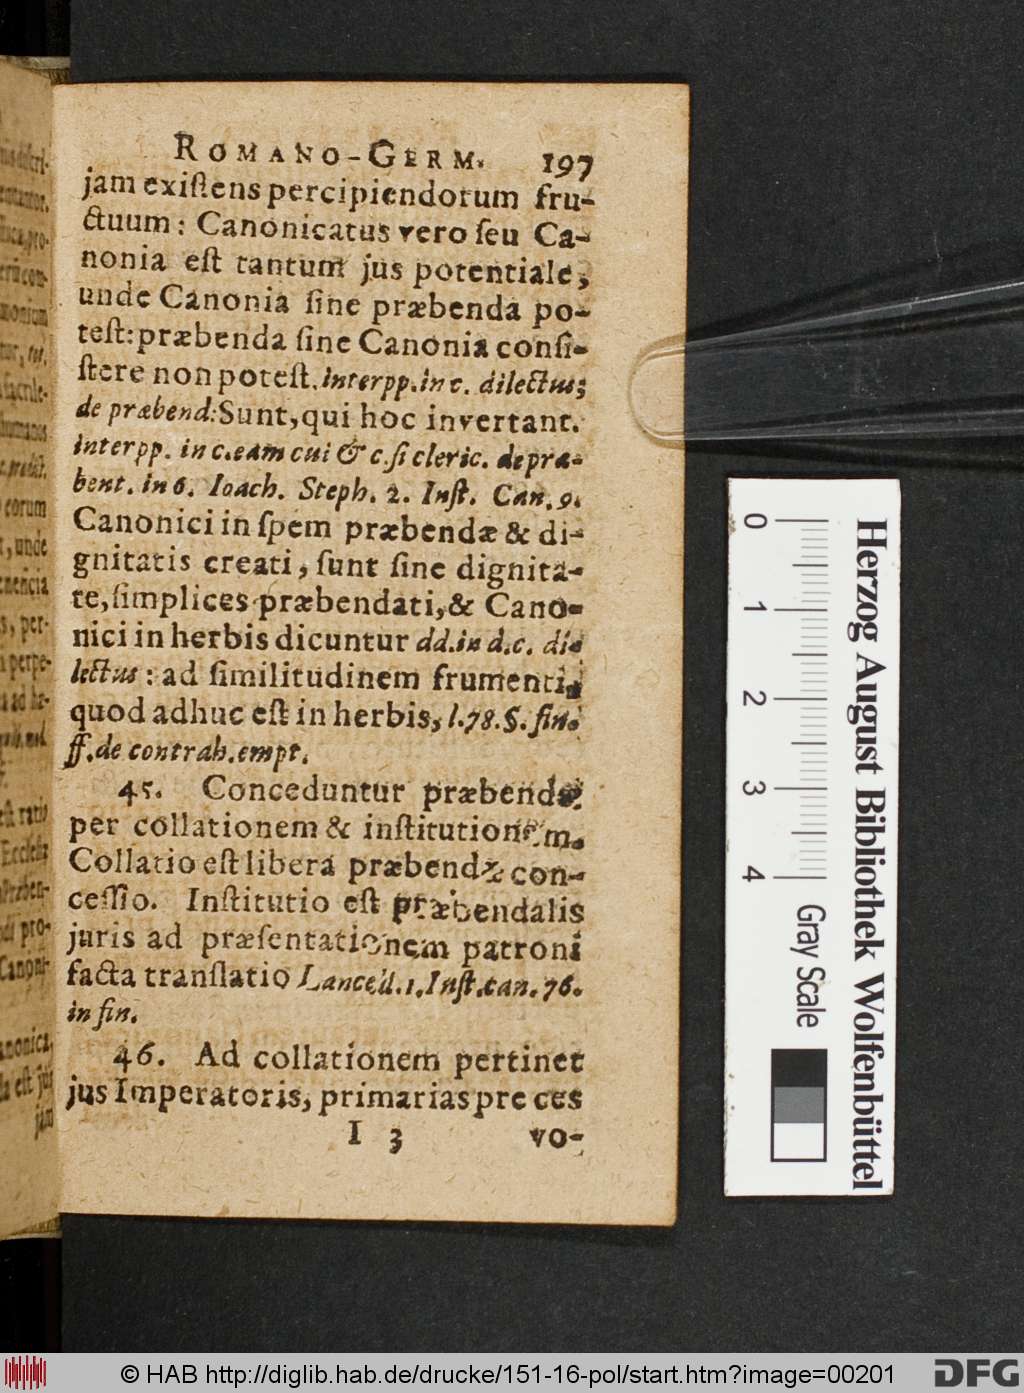 ROMANO-GERM. 197
jam existens percipiendorum fru-
ctuum: Canonicatus vero seu Ca-
nonia est tantum jus potentiale,
unde Canonia sine præbenda po-
test: præbenda sine Canonia consi-
stere non potest. Interpp. in c. dilectus;
de præbend: Sunt, qui hoc invertant.
interpp. in c. eam cui & c. si cleric. de præ-
bent. in 6. Ioach. Steph. 2. Inst. Can. 9.
Canonici in spem præbendæ & di-
gnitatis creati, sunt sine dignita-
te, simplices præbendati, & Cano-
nici in herbis dicuntur dd. in d. c. di-
lectus: ad similitudinem frumenti,
quod adhuc est in herbis, l. 78. §. fin.
ff. de contrah. empt.
45. Conceduntur præbendæ
per collationem & institutionem.
Collatio est libera præbendæ con-
cessio. Institutio est præbendalis
juris ad præsentationem patroni
facta translatio Lancell. 1. Inst. can. 76.
in fin.
46. Ad collationem pertinet
jus Imperatoris, primarias preces
I 3 vo-
0 1 2 3 4
Gray Scale
Herzog August Bibliothek Wolfenbüttel
© HAB http://diglib.hab.de/drucke/151-16-pol/start.htm?image=00201
DFG